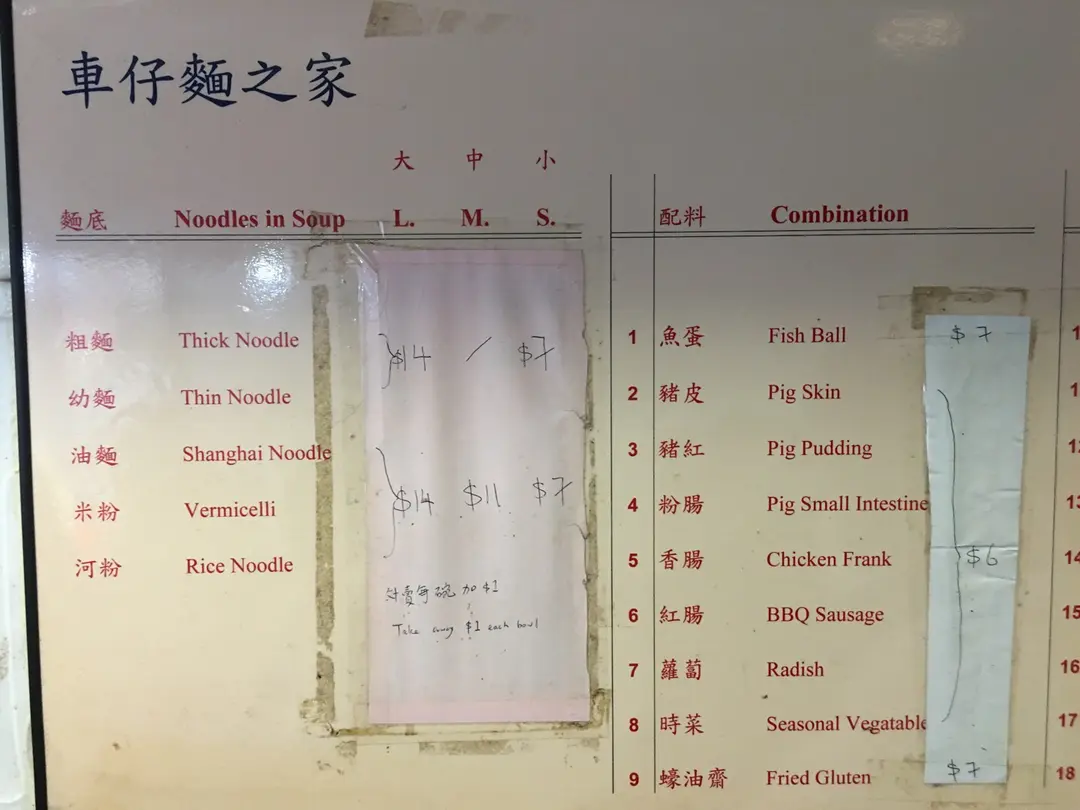 車仔麵之家
大 中 小
麵底 Noodles in Soup L. M. S.
粗麵 Thick Noodle
幼麵 Thin Noodle
$14 / $7
油麵 Shanghai Noodle
米粉 Vermicelli
河粉 Rice Noodle
$14 $11 $7
外賣每碗加$1
Take away $1 each bowl
配料 Combination
1 魚蛋 Fish Ball $7
2 豬皮 Pig Skin
3 豬紅 Pig Pudding
4 粉腸 Pig Small Intestine
5 香腸 Chicken Frank $6
6 紅腸 BBQ Sausage
7 蘿蔔 Radish
8 時菜 Seasonal Vegatable
9 蠔油齋 Fried Gluten $7
15
16
17
18